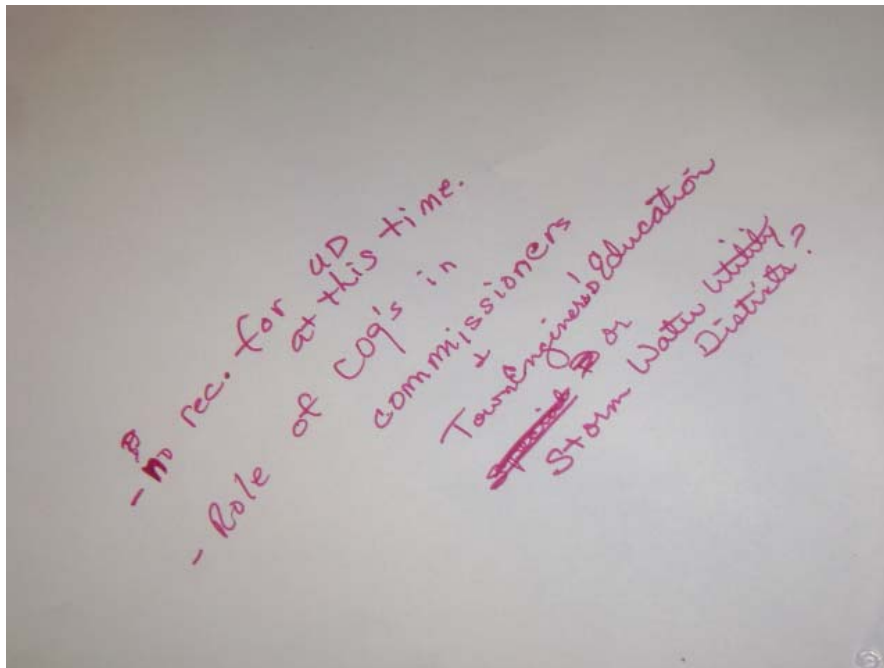 - no rec. for UD
at this time.
- Role of COG's in
commissioners
+
Town Engineers' Education
or
Storm Water Utility
Districts?